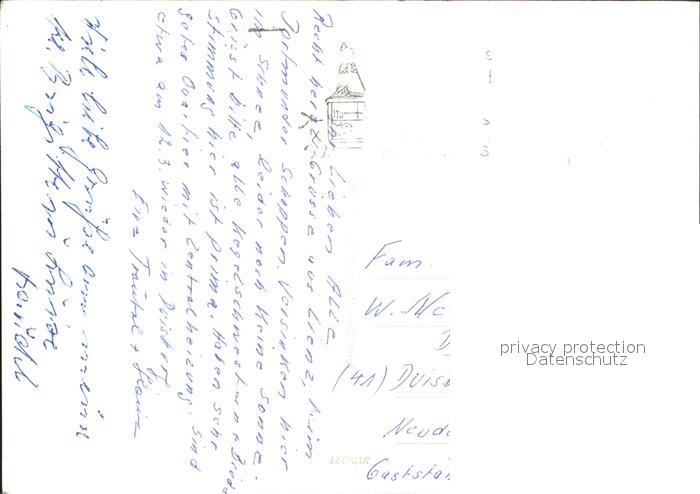 Ihr Lieben Alle
Recht herzl. Grüsse aus Lienz, beim
Dortmunder Schoppen. Versinken hier
im Schnee, leider noch keine Sonne.
Grüsst bitte alle Kegelschwestern + Brüder
Stimmung hier ist prima. Haben sehr
gutes Quartier mit Zentralheizung. Sind
etwa am 12.3. wieder in Duisburg
Eure Trautel + Heinz
Viele liebe Grüße
Fam.
W. Ne
D
(41) Duisb
Neudo
Gaststät
privacy protection
Datenschutz